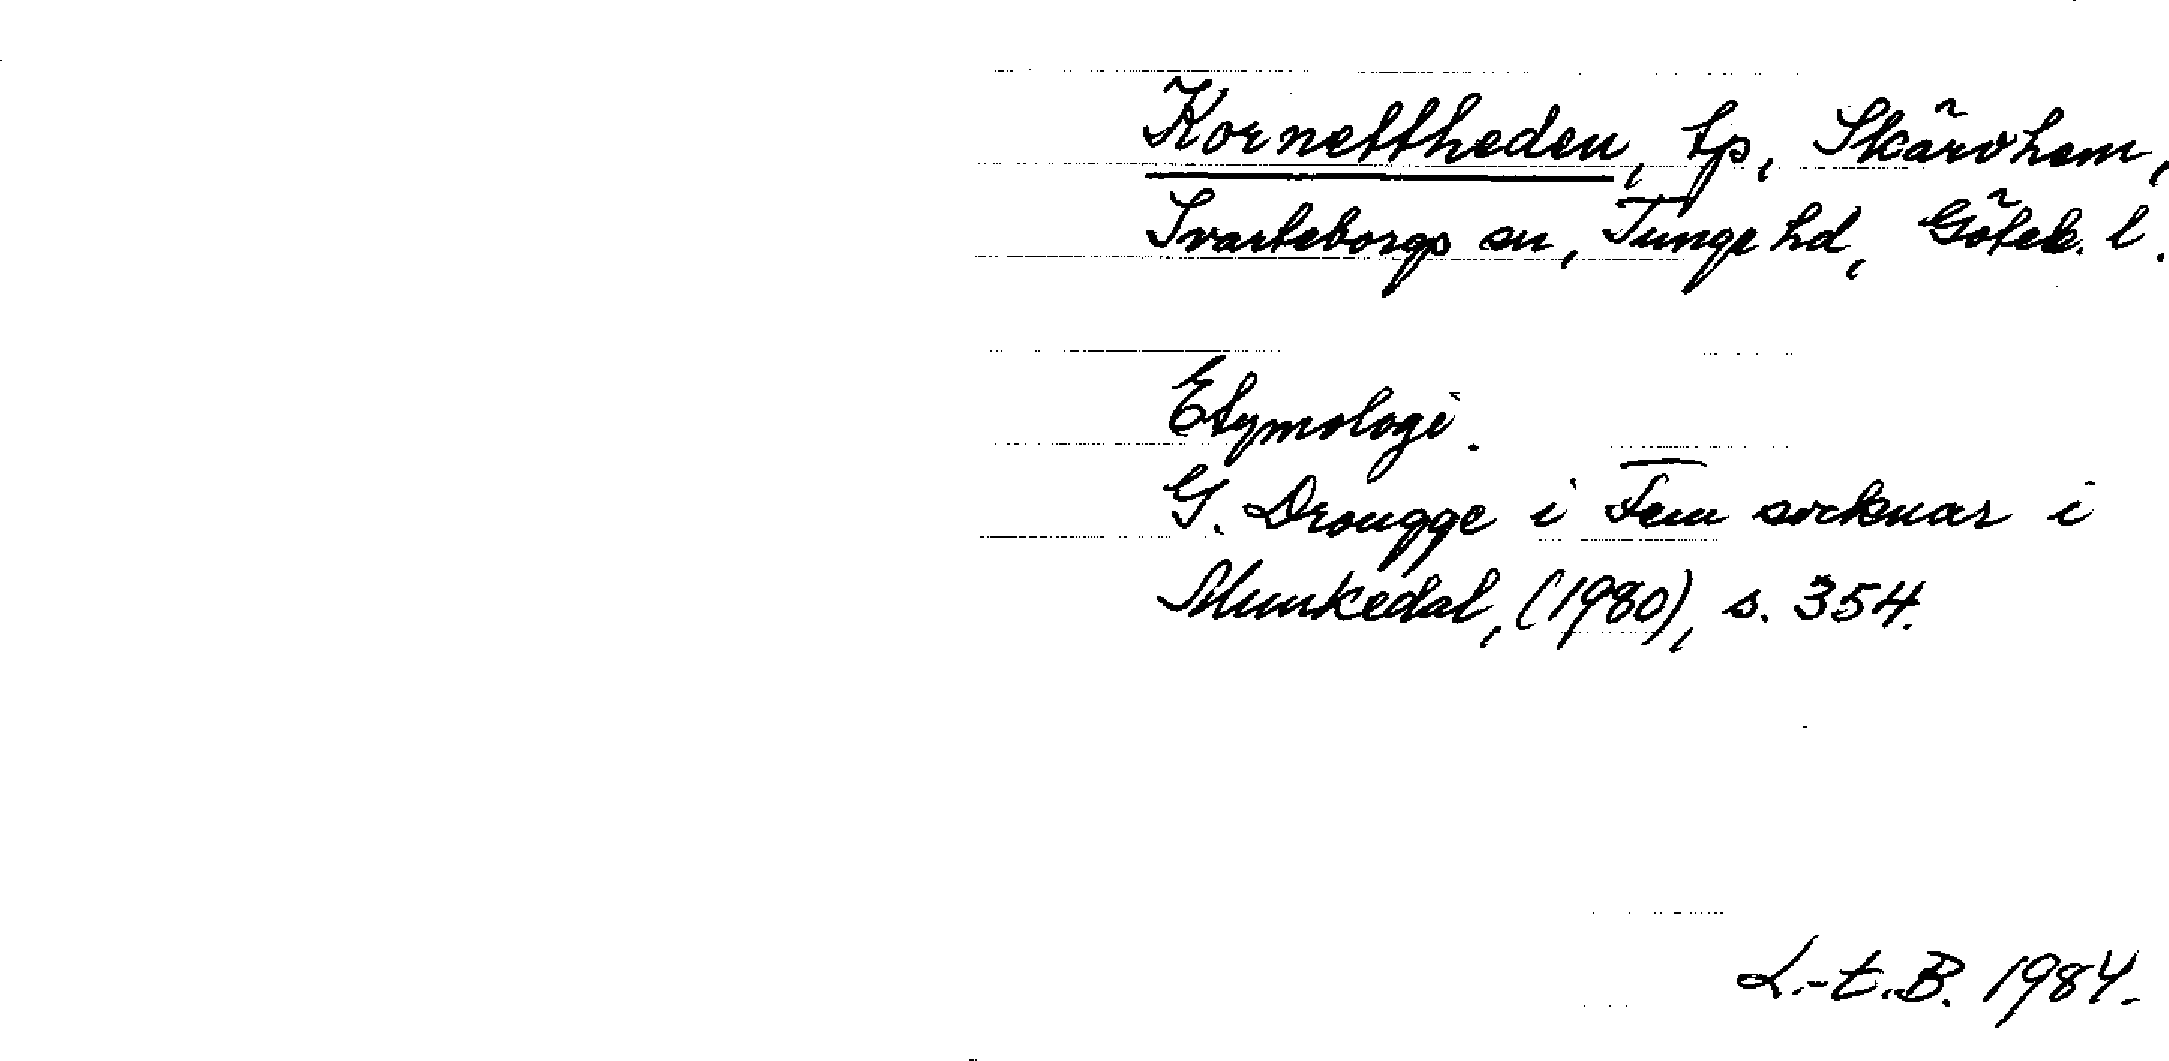 Kornettheden, tp, Skärvhem,
Svarteborgs sn, Tunge hd, Göteb. l.
Etymologi.
G. Drougge i Fem socknar i
Munkedal, (1980), s. 354.
L.-E.B. 1984.